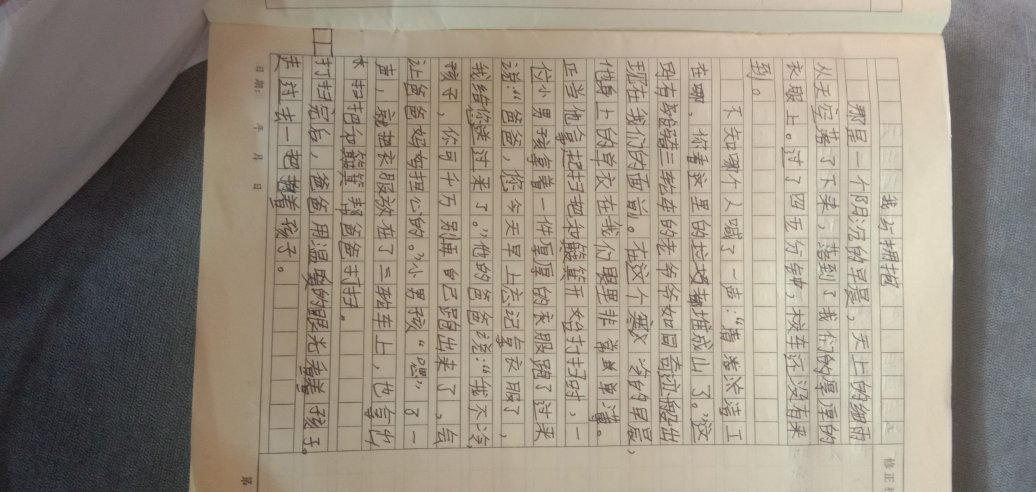 我与拥抱
那是一个阴沉的早晨，天上的细雨
从天空落了下来，落到了我们的厚厚的
衣服上。过了四五分钟，校车还没有来
到。
不知哪个人喊了一声："清洁工
在哪，你看这里的垃圾堆成山了。"这
时有的骑三轮车的老爷爷如同奇迹般出
现在我们的面前。在这个寒冷的早晨，
他身上的单衣在我们眼里非常单薄。
正当他拿起扫把和簸箕开始打扫时，一
位小男孩拿着一件厚厚的衣服跑了过来
说："爸爸，您今天早上忘记拿衣服了，
我给您送过来了。"他的爸爸说："我不冷，
孩子，你可千万别再自己跑出来了。会
让爸爸妈妈担心的。"小男孩"嗯"了一
声，就把衣服放在了三轮车上，也拿出
扫把和簸箕帮爸爸打扫。
打扫完后，爸爸用温暖的眼光看着孩子。
走过去一把抱着孩子。
日期： 年 月 日
修正
第